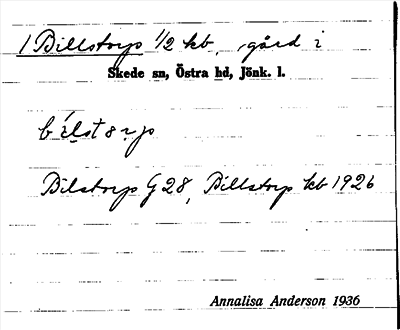 1 Billstorp 1/2 kb, gård i
Skede sn, Östra hd, Jönk. l.
bílstorp
Bilstorp G 28, Billstorp kb 1926
Annalisa Anderson 1936